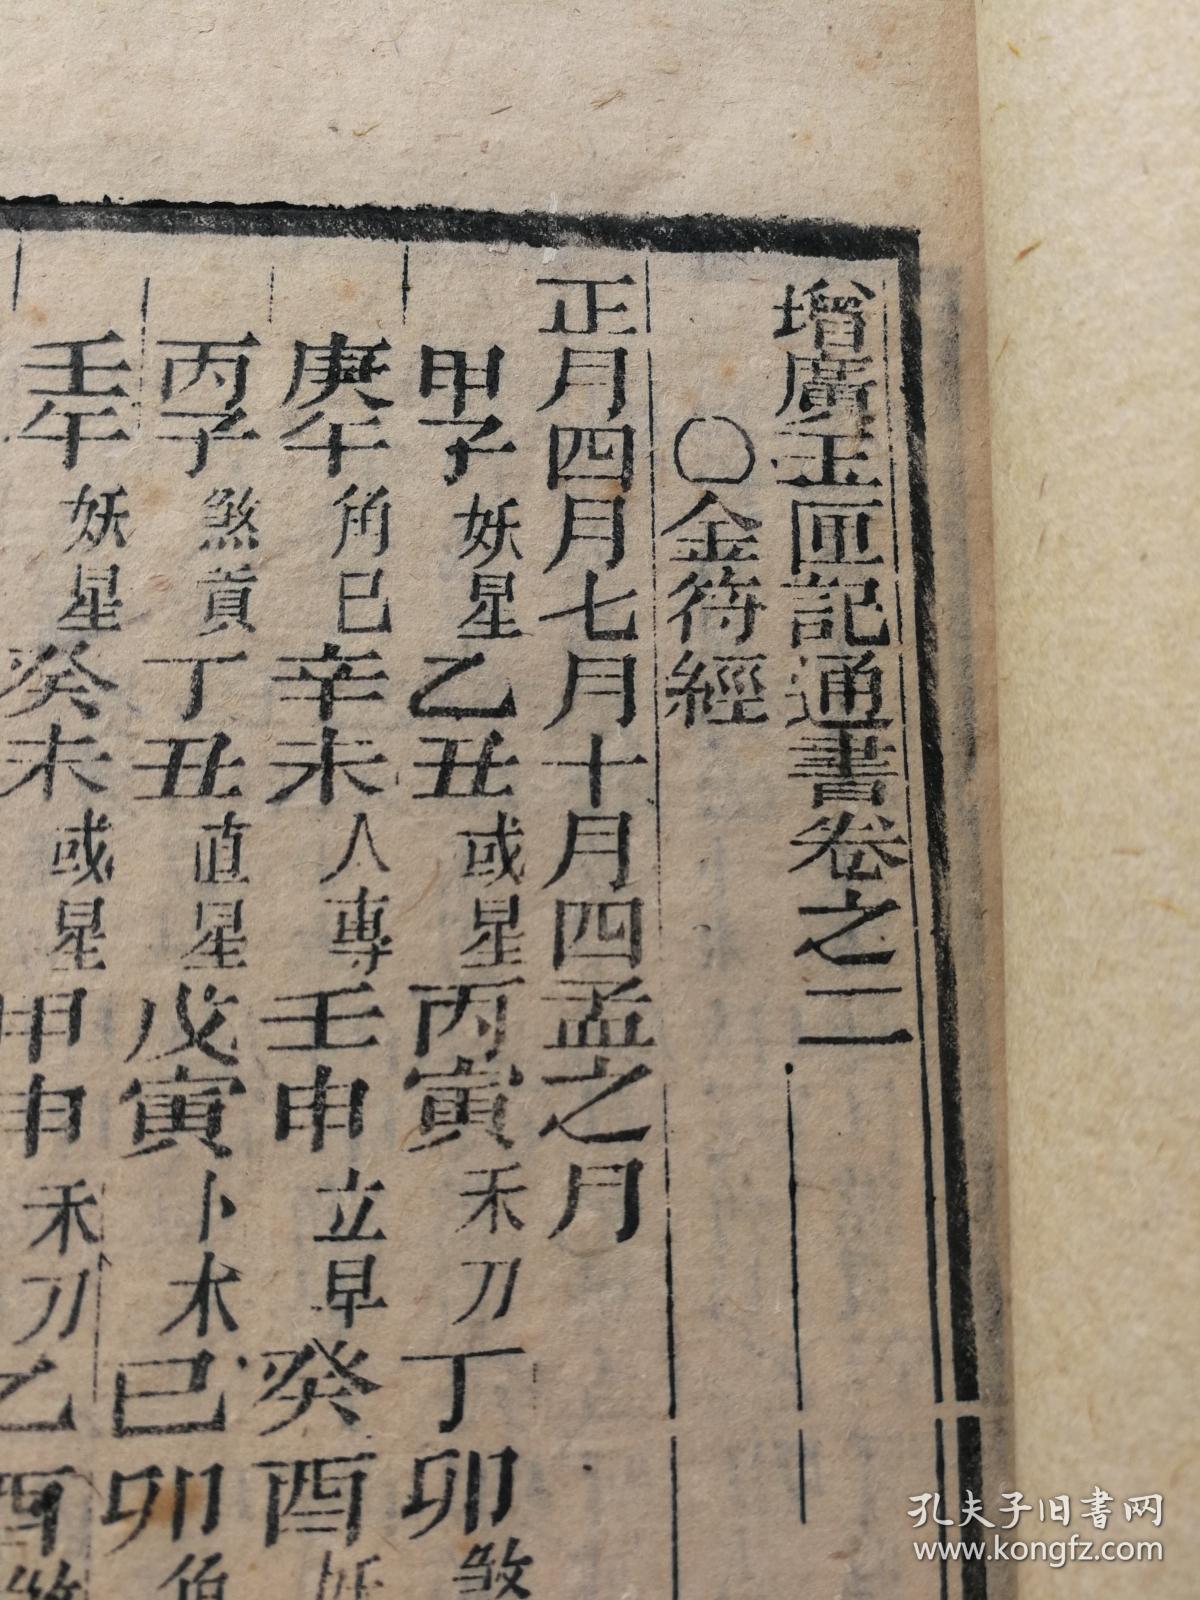 增廣玉匣記通書卷之二
〇金符經
正月四月七月十月四孟之月
甲子妖星乙丑或星丙寅禾刀丁卯煞
庚午角巳辛未人專壬申立早癸酉妖
丙子煞貢丁丑直星戊寅卜木己卯角
壬午妖星癸未或星甲申禾刀乙酉煞
孔夫子旧书网
www.kongfz.com